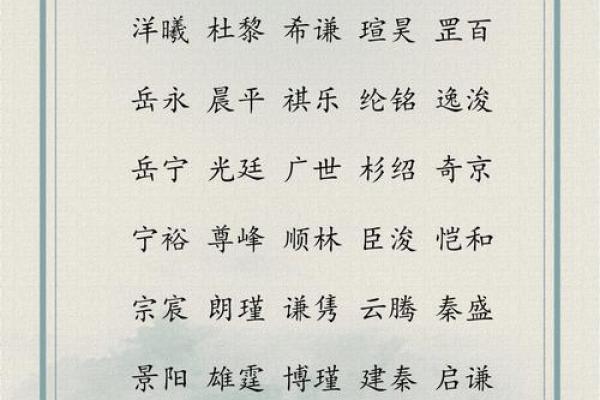 洋曦 杜黎 希谦 瑄昊 罡百
岳永 晨平 祺乐 纶铭 逸浚
岳宁 光廷 广世 杉绍 奇京
宁裕 尊峰 顺林 臣浚 恺和
宗宸 朗瑾 谦隽 云腾 秦盛
景阳 雄霆 博瑾 建秦 启谦